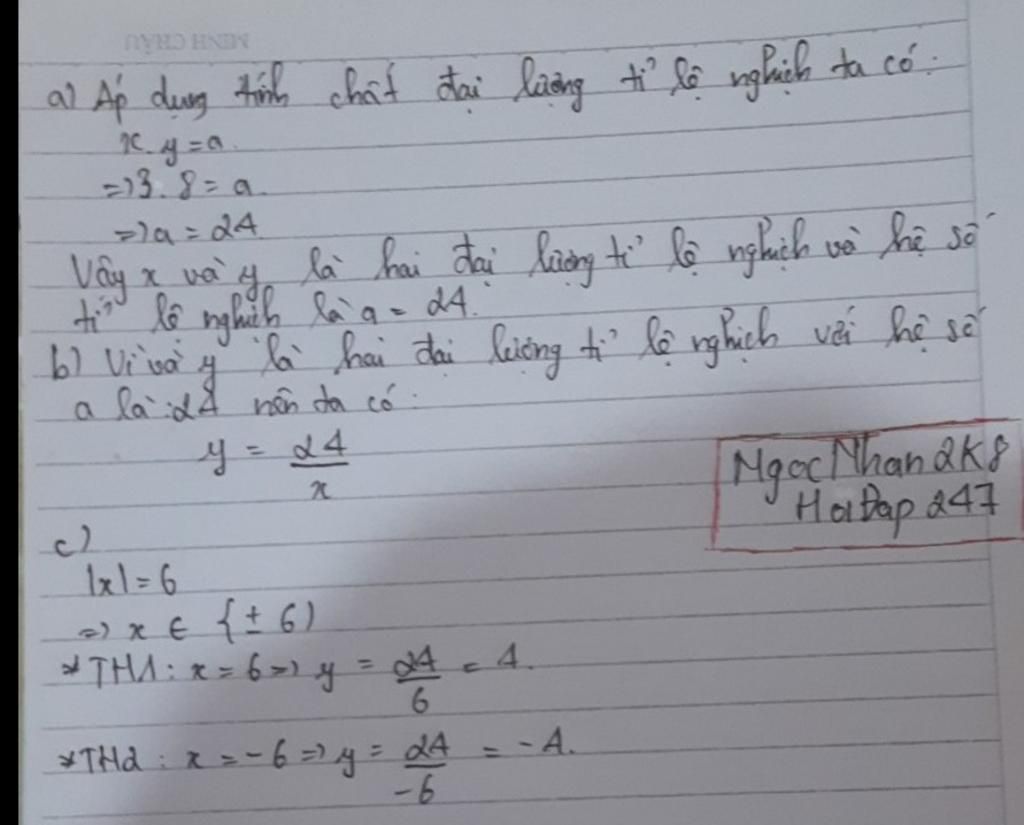 MINH CHÂU
a) Áp dụng tính chất đại lượng tỉ lệ nghịch ta có:
x.y = a.
=> 3.8 = a.
=> a = 24
Vậy x và y là hai đại lượng tỉ lệ nghịch và hệ số
tỉ lệ nghịch là a = 24.
b) Vì và y là hai đại lượng tỉ lệ nghịch với hệ số
a là: 24 nên ta có:
y = 24/x
Ngoc Nhan 2K8
Hoi Đap 247
c)
|x| = 6
=> x ∈ {± 6)
* TH1: x = 6 => y = 24/6 = 4.
* TH2: x = -6 => y = 24/-6 = -4.